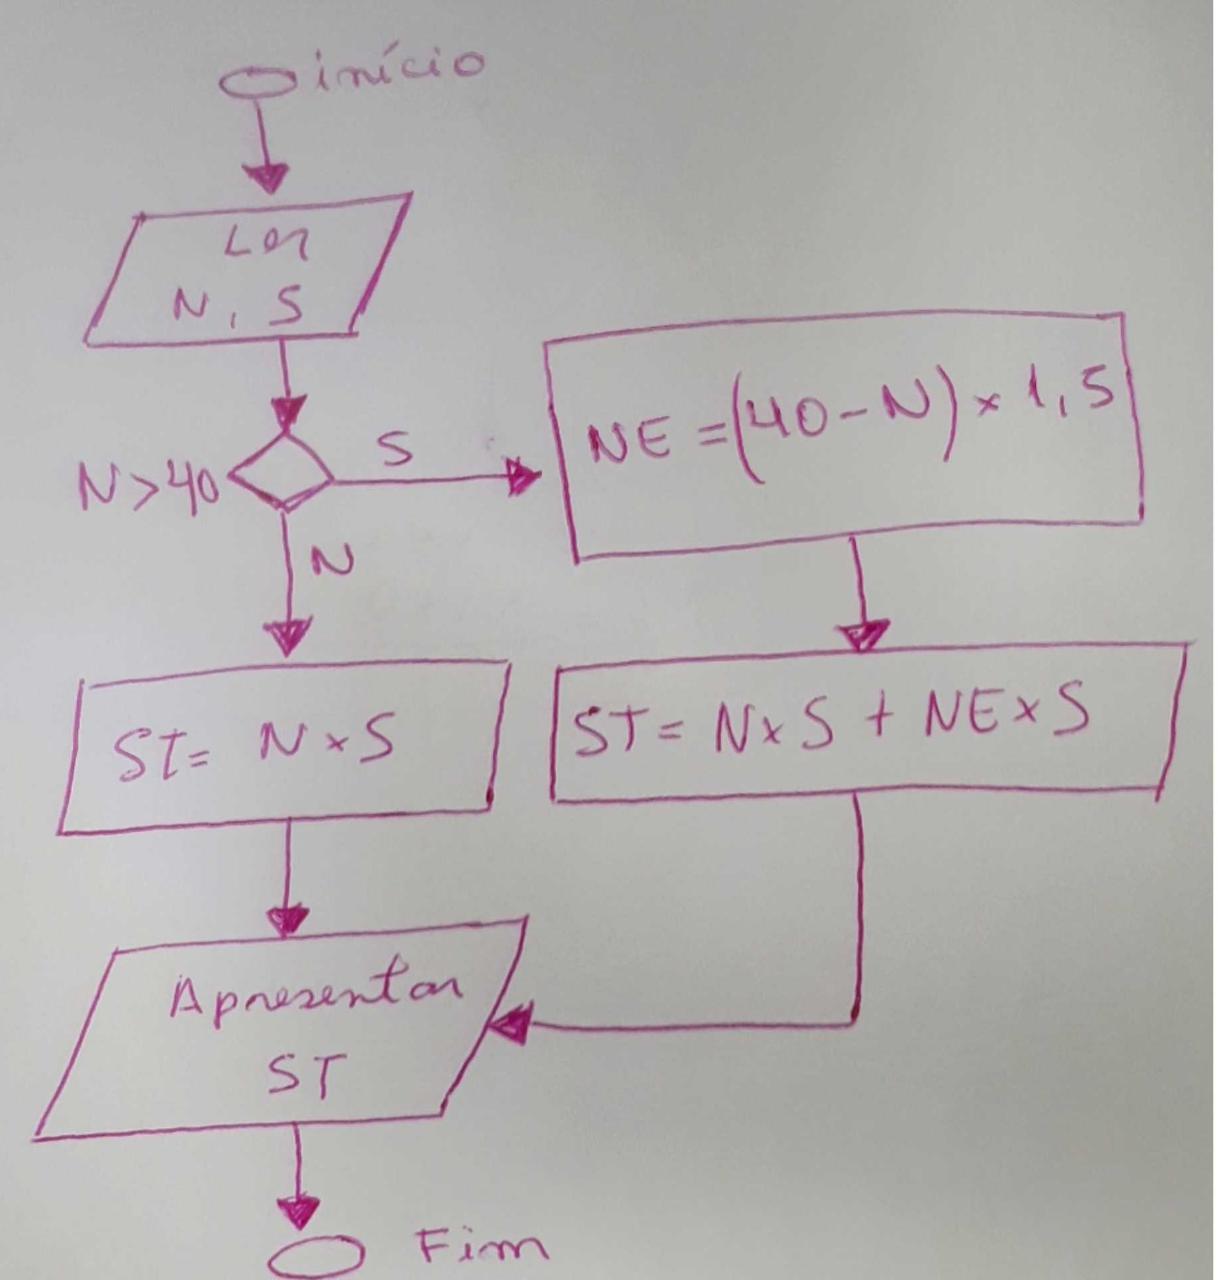 início
Ler
N, S
N>40
S
NE=(40-N)×1,5
N
ST= N×S
ST= N×S + NE×S
Apresentar
ST
Fim